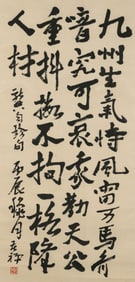 九州生氣恃風雷万馬齊
喑究可哀我勸天公
重抖擻不拘一格降
人材 龔自珍句